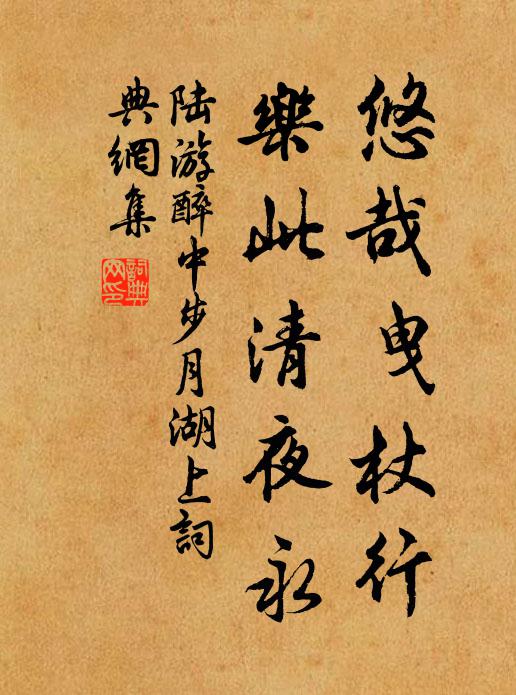 悠哉曳杖行
樂此清夜永
陸游醉中步月湖上詞
典網集
詞典
网印